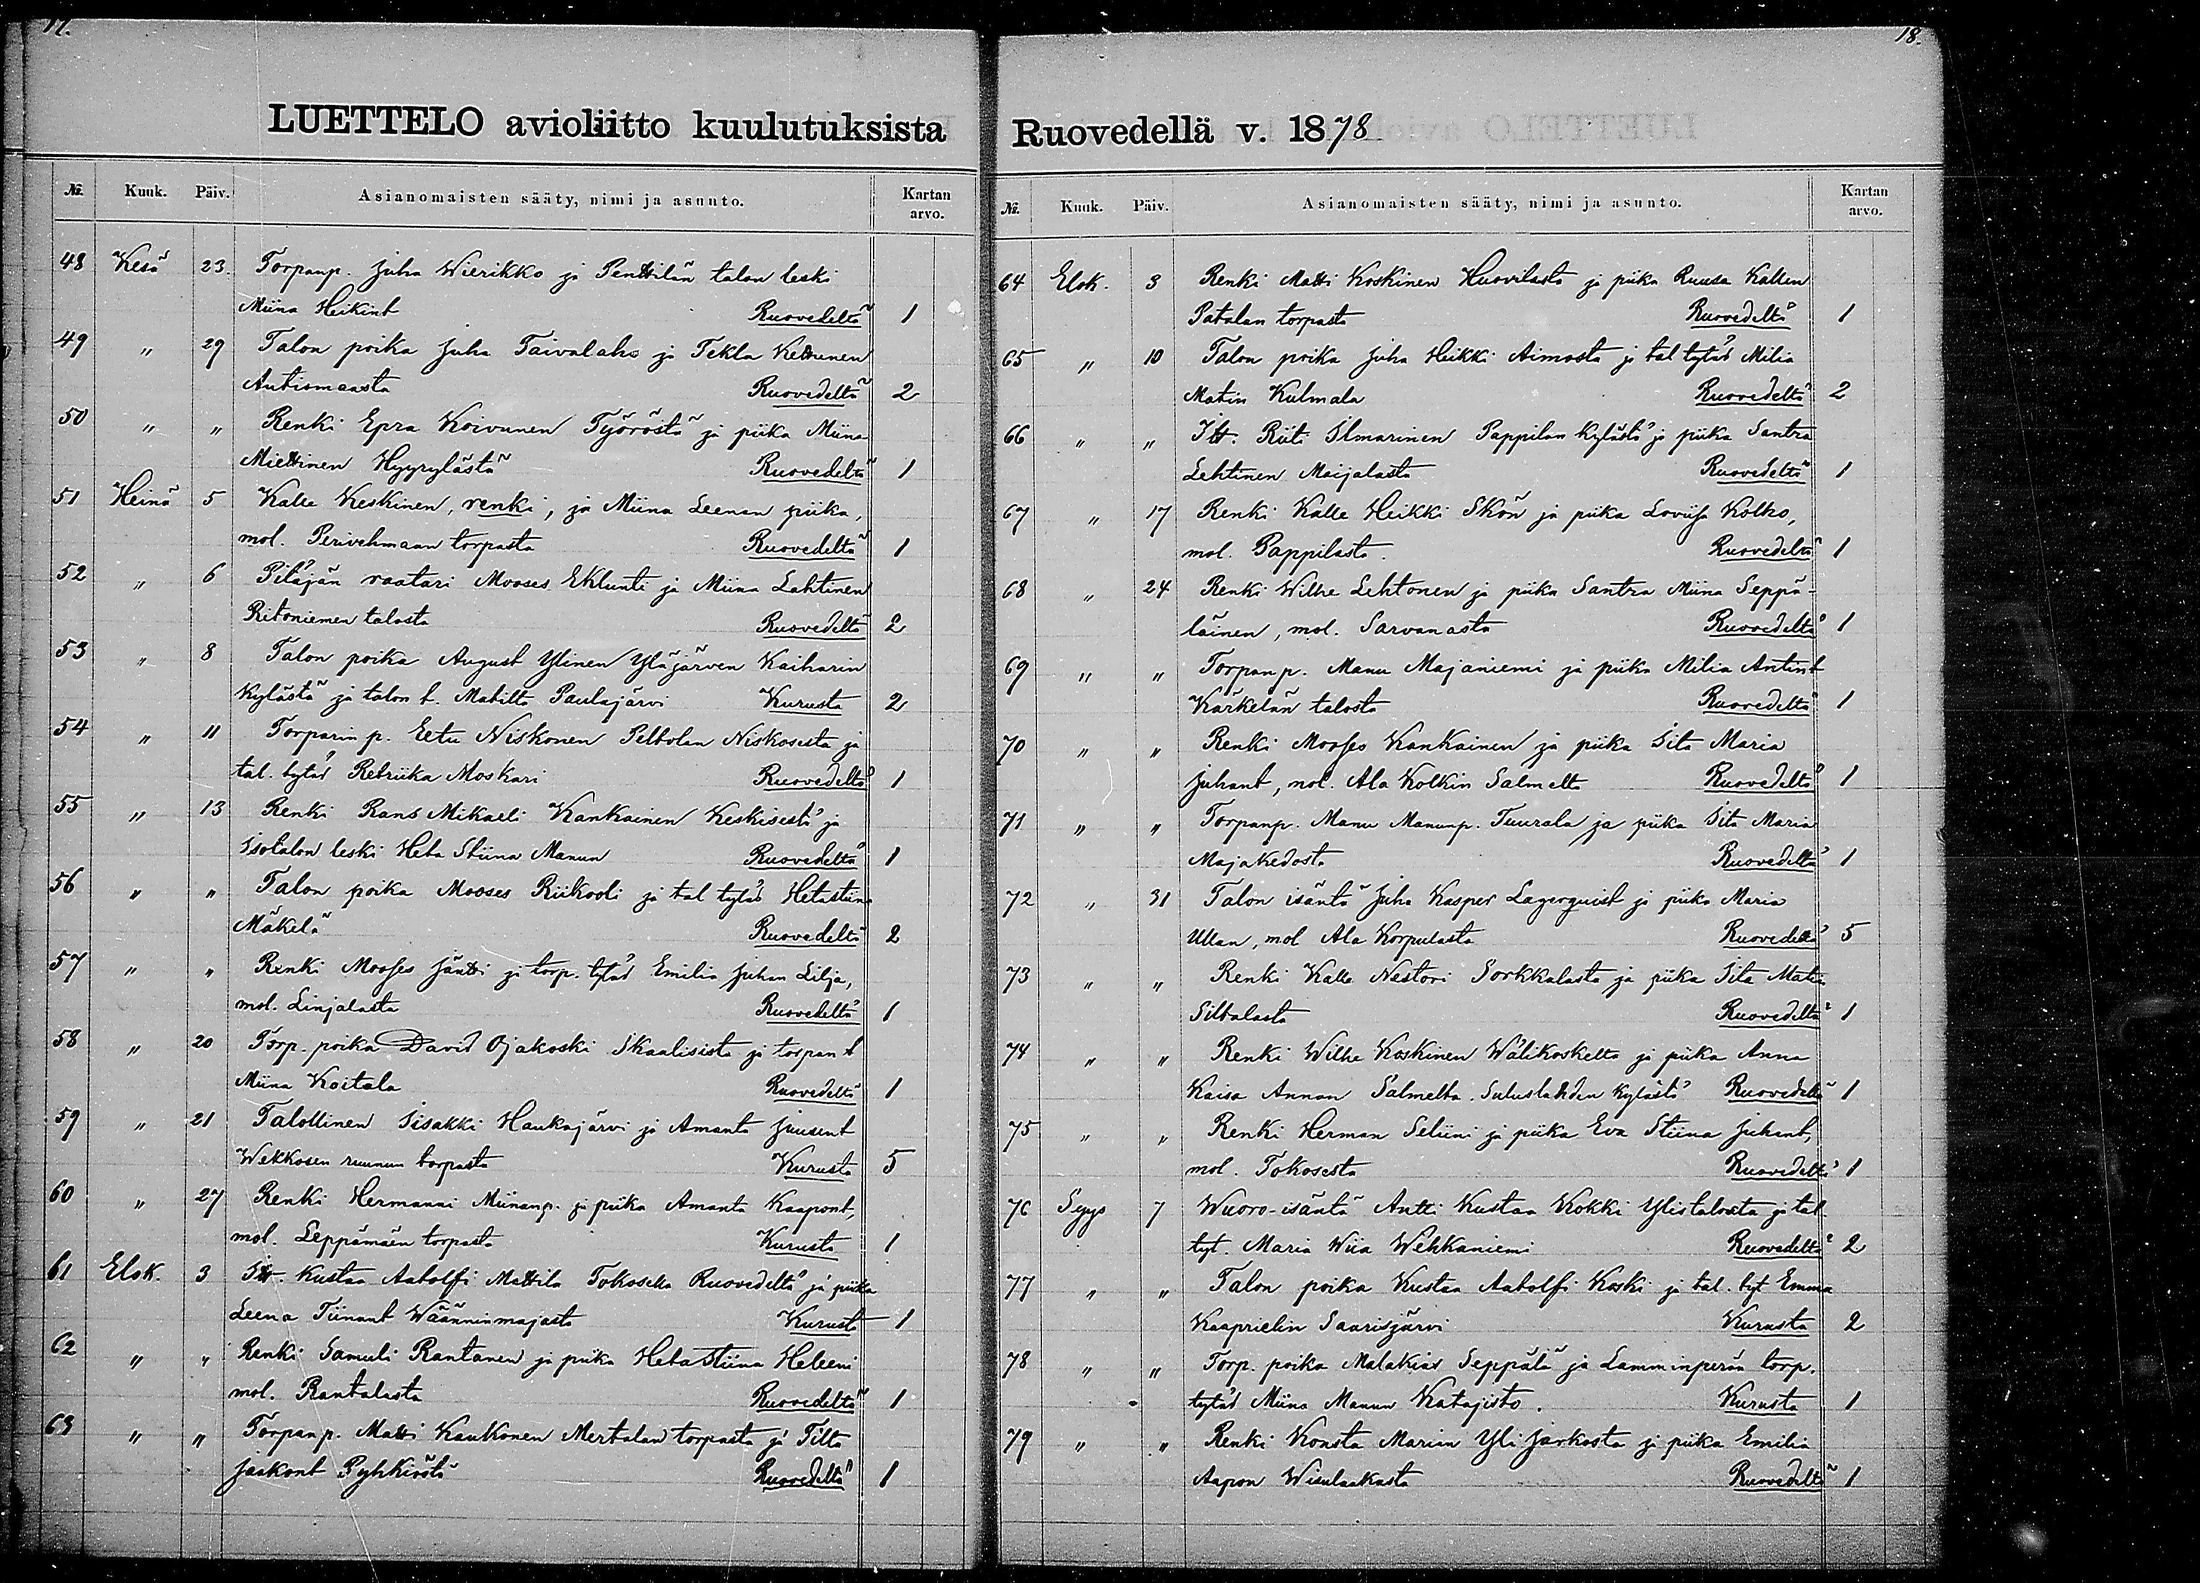 17.
LUETTELO avioliitto kuulutuksista
№. Kuuk. Päiv. Asianomaisten sääty, nimi ja asunto. Kartan arvo.
48 Kesä 23. Torpanp. Juha Wierikko ja Penttilän talon leski
Miina Heikint Ruovedeltä 1
49 " 29 Talon poika Juha Taivalaho ja Tekla Kettunen
Autiomaasta Ruovedeltä 2
50 " " Renki Epra Koivunen Työröstä ja piika Miina
Miettinen Hyyrylästä Ruovedeltä 1
51 Heinä 5 Kalle Keskinen, renki, ja Miina Leenan piika,
mol. Perivehmaan torpasta Ruovedeltä 1
52 " 6 Pitäjän raatari Mooses Eklunti ja Miina Lahtinen
Ritoniemen talosta Ruovedeltä 2
53 " 8 Talon poika August Ylinen Ylöjärven Kaiharin
kylästä ja talon t. Matilta Paulajärvi Kurusta 2
54 " 11 Torparin p. Eetu Niskonen Peltolan Niskosesta ja
tal. tytär Retriika Moskari Ruovedeltä 1
55 " 13 Renki Rans Mikaeli Kankainen Keskisestä ja
Isotalon leski Heta Stiina Manun Ruovedeltä 1
56 " " Talon poika Mooses Riikooli ja tal tytär Hetastiina
Mäkelä Ruovedeltä 2
57 " " Renki Mooses Jäntti ja torp. tytär Emilia Juhan Lilja,
mol. Linjalasta Ruovedeltä 1
58 " 20 Torp. poika David Ojakoski Skaalisista ja torpan t
Miina Koitala Ruovedeltä 1
59 " 21 Talollinen Iisakki Haukajärvi ja Amanta Juusent
Wekkosen ruunun torpasta Kurusta 5
60 " 27 Renki Hermanni Miinanp. ja piika Amanta Kaapont,
mol. Leppämäen torpasta Kurusta 1
61 Elok. 3 Itt. Kustaa Aatolfi Mattila Tokosella Ruovedeltä ja piika
Leena Tiinant Wäänninmajasta Kurusta 1
62 " " Renki Samuli Rantanen ja piika Heta Stiina Heleeni
mol. Rantalasta Ruovedeltä 1
63 " " Torpanp. Matti Kaukonen Mertalan torpasta ja Tilta
Jaakont Pyhkiöstä Ruovedeltä 1
18.
Ruovedellä v. 1878
№. Kuuk. Päiv. Asianomaisten sääty, nimi ja asunto. Kartan arvo.
64 Elok. 3 Renki Matti Koskinen Huovilasta ja piika Ruusa Kallen
Patalan torpasta Ruovedeltä 1
65 " 10 Talon poika Juha Heikki Aimosta ja tal tytär Milia
Matin Kulmala Ruovedeltä 2
66 " " Itt. Riiti Ilmarinen Pappilan kylästä ja piika Santra
Lehtinen Maijalasta Ruovedeltä 1
67 " 17 Renki Kalle Heikki Skön ja piika Loviisa Kolho,
mol. Pappilasta. Ruovedeltä 1
68 " 24 Renki Wilhe Lehtonen ja piika Santra Miina Seppä-
läinen, mol. Sarvanasta Ruovedeltä 1
69 " " Torpanp. Manu Majaniemi ja piika Milia Antint
Kärkelän talosta Ruovedeltä 1
70 " " Renki Mooses Kankainen ja piika Iita Maria
Juhant, mol. Ala Kolkin Salmelta Ruovedeltä 1
71 " " Torpanp. Manu Manunp. Tuurala ja piika Iita Maria
Majakedosta Ruovedeltä 1
72 " 31 Talon isäntä Juha Kasper Lagerquist ja piika Maria
Ullan, mol Ala Korpulasta Ruovedeltä 5
73 " " Renki Kalle Nestori Sorkkalasta ja piika Iita Matin
Siltalasta Ruovedeltä 1
74 " " Renki Wilhe Koskinen Wälikoskelta ja piika Anna
Kaisa Annan Salmelta. Suluslahden kylästä Ruovedeltä 1
75 " " Renki Herman Seliini ja piika Eva Stiina Juhant,
mol. Tokosesta Ruovedeltä 1
76 Syys 7 Wuoro-isäntä Antti Kustaa Kokki Ylistalosta ja tal.
tyt. Maria Wiia Wehkaniemi Ruovedeltä 2
77 " " Talon poika Kustaa Aatolfi Koski ja tal. tyt Emma
Kaaprielin Saarisjärvi Kurusta 2
78 " " Torp. poika Malakias Seppälä ja Lamminperän torp.
tytär Miina Manun Katajisto. Kurusta 1
79 " " Renki Konsta Marian Yli Jarkosta ja piika Emilia
Aapon Wisulaakasta Ruovedeltä 1